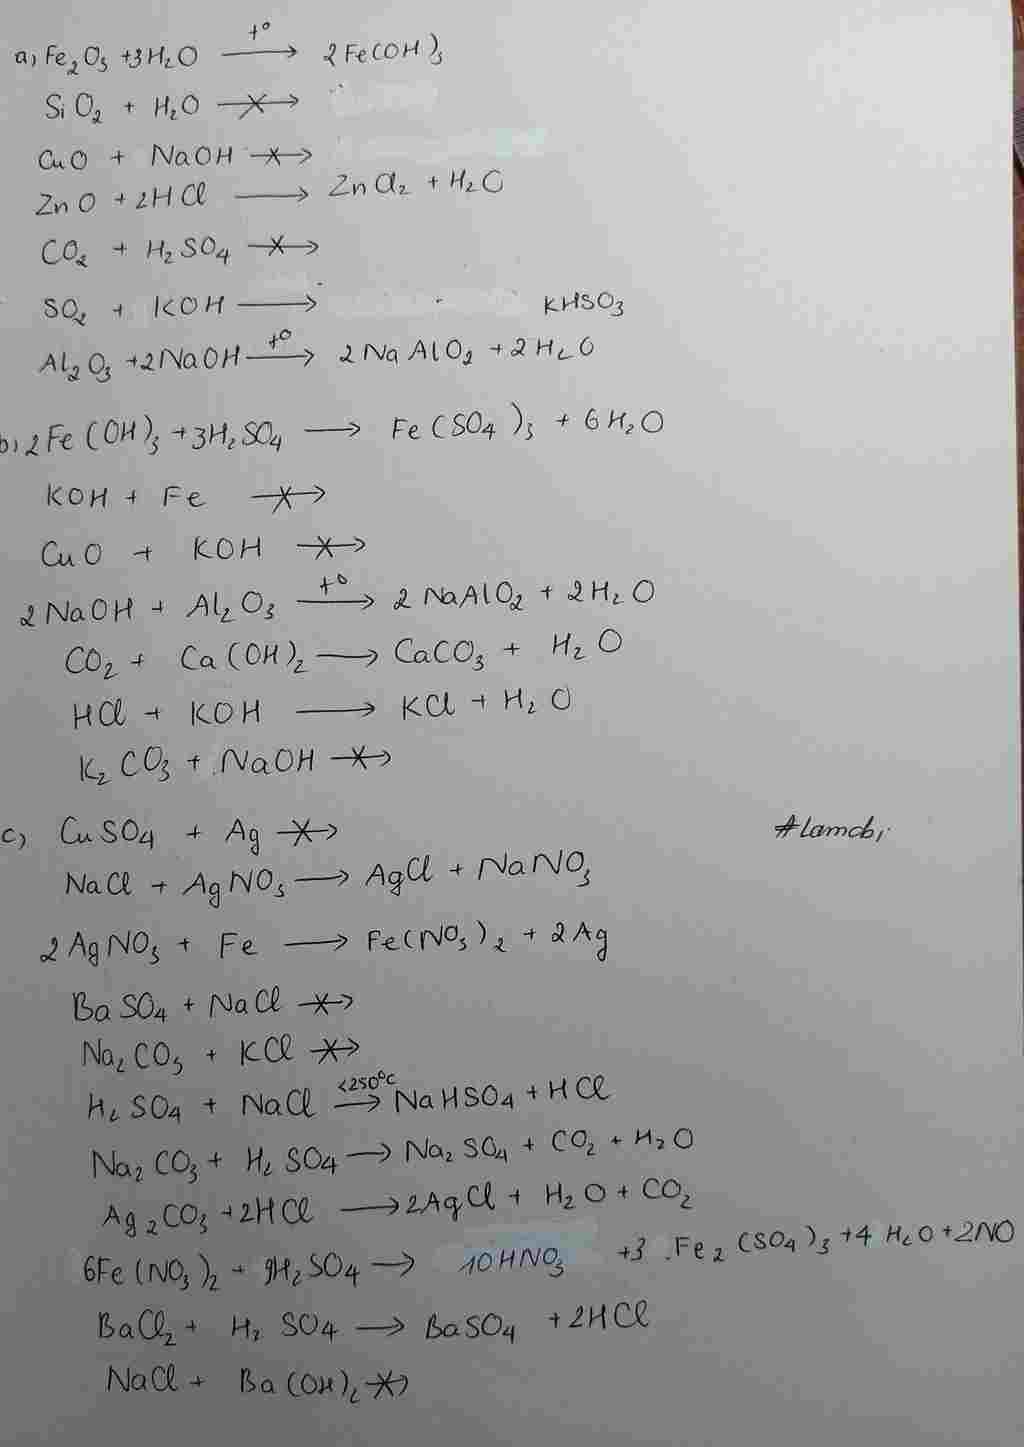 a) Fe₂O₃ + 3H₂O —t°→ 2Fe(OH)₃
SiO₂ + H₂O —X→
CuO + NaOH —X→
ZnO + 2HCl ⟶ ZnCl₂ + H₂O
CO₂ + H₂SO₄ —X→
SO₂ + KOH ⟶ KHSO₃
Al₂O₃ + 2NaOH —t°→ 2NaAlO₂ + 2H₂O
b) 2Fe(OH)₃ + 3H₂SO₄ ⟶ Fe(SO₄)₃ + 6H₂O
KOH + Fe —X→
CuO + KOH —X→
2NaOH + Al₂O₃ —t°→ 2NaAlO₂ + 2H₂O
CO₂ + Ca(OH)₂ ⟶ CaCO₃ + H₂O
HCl + KOH ⟶ KCl + H₂O
K₂CO₃ + NaOH —X→
c) CuSO₄ + Ag —X→
#lamchi
NaCl + AgNO₃ ⟶ AgCl + NaNO₃
2AgNO₃ + Fe ⟶ Fe(NO₃)₂ + 2Ag
BaSO₄ + NaCl —X→
Na₂CO₃ + KCl —X→
H₂SO₄ + NaCl —<250°C→ NaHSO₄ + HCl
Na₂CO₃ + H₂SO₄ ⟶ Na₂SO₄ + CO₂ + H₂O
Ag₂CO₃ + 2HCl ⟶ 2AgCl + H₂O + CO₂
6Fe(NO₃)₂ + 9H₂SO₄ ⟶ 10HNO₃ + 3Fe₂(SO₄)₃ + 4H₂O + 2NO
BaCl₂ + H₂SO₄ ⟶ BaSO₄ + 2HCl
NaCl + Ba(OH)₂ —X→